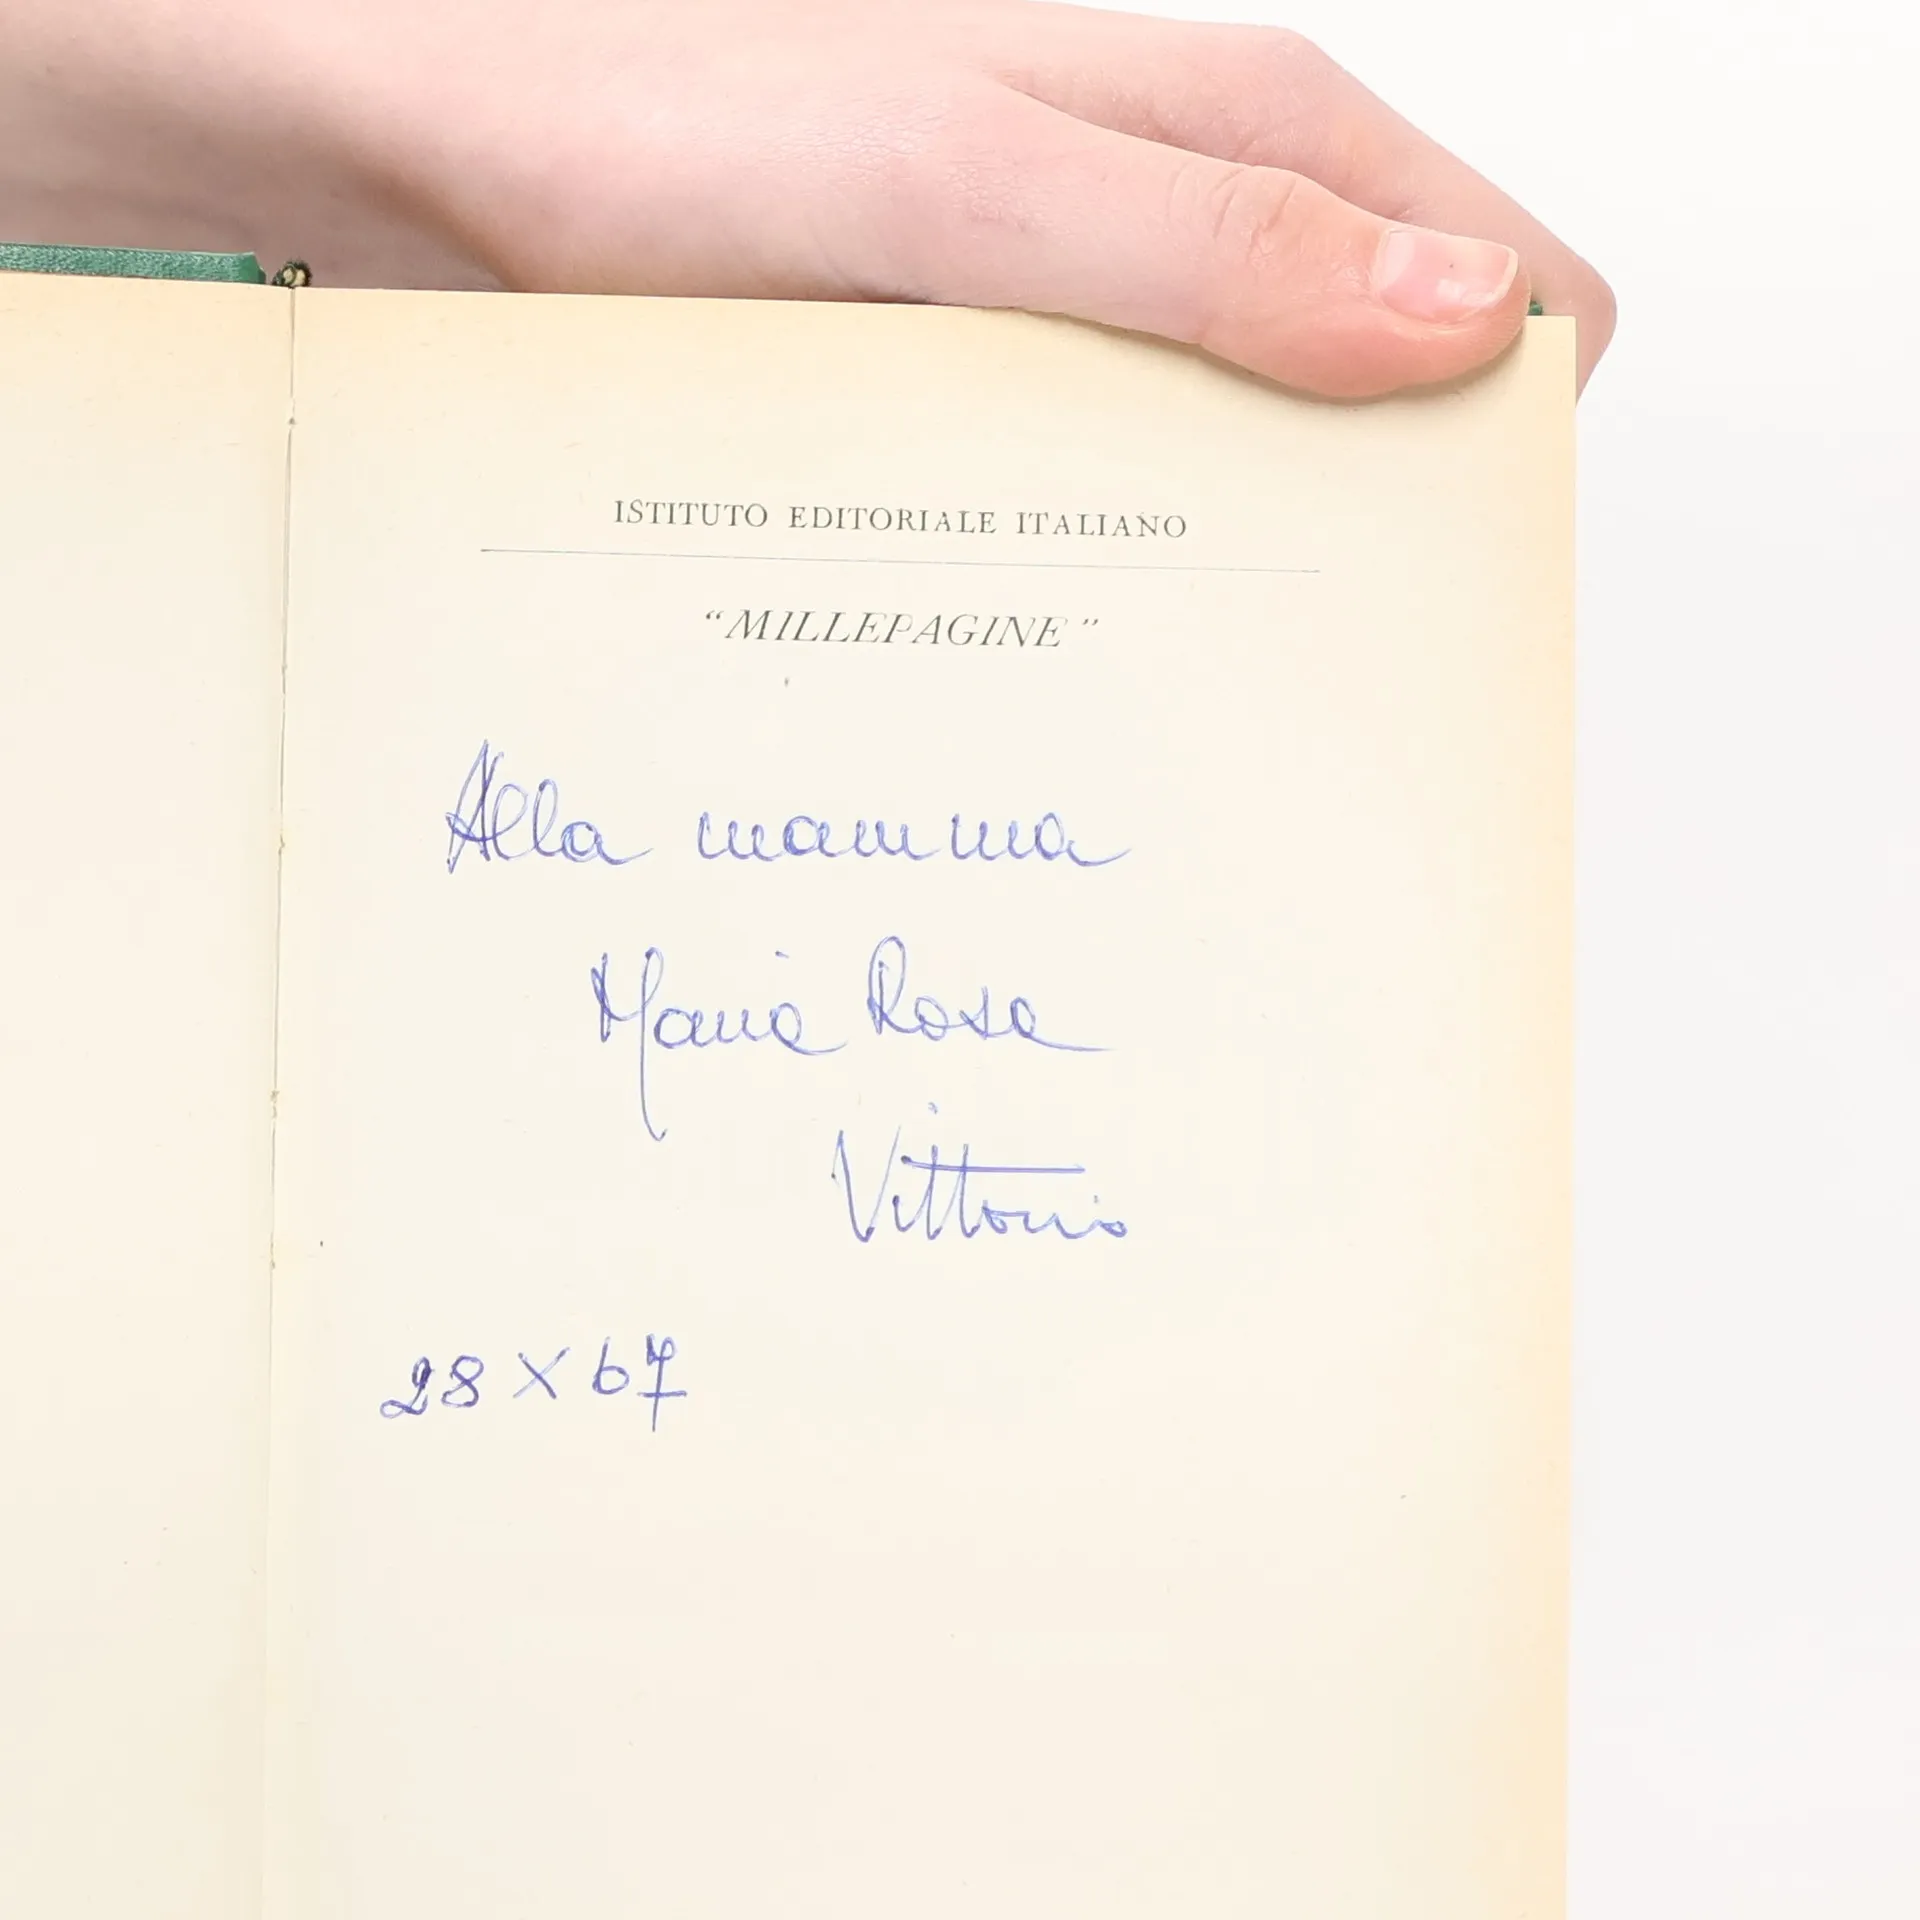 ISTITUTO EDITORIALE ITALIANO
“MILLEPAGINE”
Alla mamma
Maria Rosa
Vittorio
28 X 67